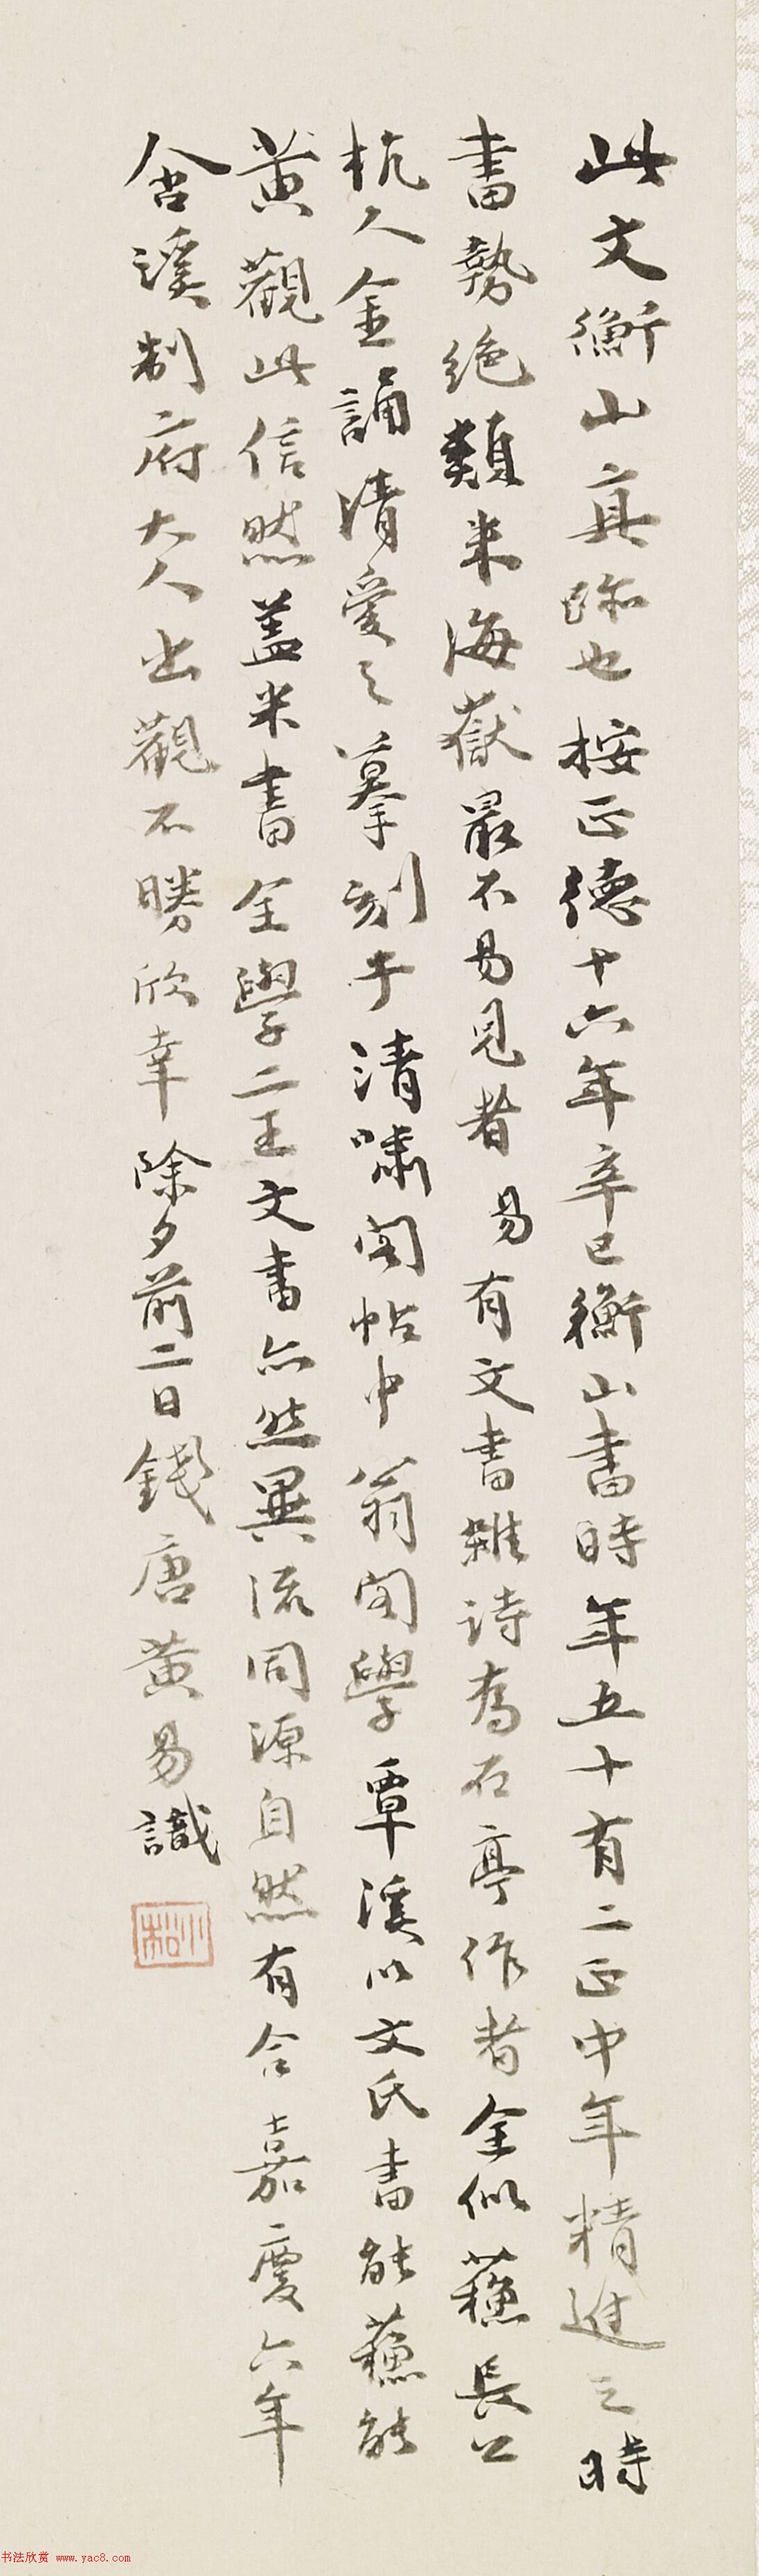 此文衡山真跡也按正德十六年辛巳衡山書時年五十有二正中年精進之時
書勢絶類米海嶽最不易見者易有文書雜詩為石亭作者全似蘓長公
杭人金誦清愛之摹刻于清嘯閣帖中翁閣學覃溪以文氏書能蘓能
黄觀此信然盖米書全學二王文書亦然異流同源自然有合嘉慶六年
含溪制府大人出觀不勝欣幸除夕前二日錢唐黄易識
小松
书法欣赏 www.yac8.com